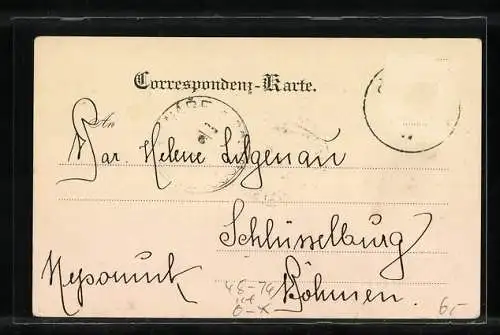 Correspondenz-Karte.
An
Helene Lilgenau
Schlüsselburg
Nepomuk
48-74
Böhmen.
6,-